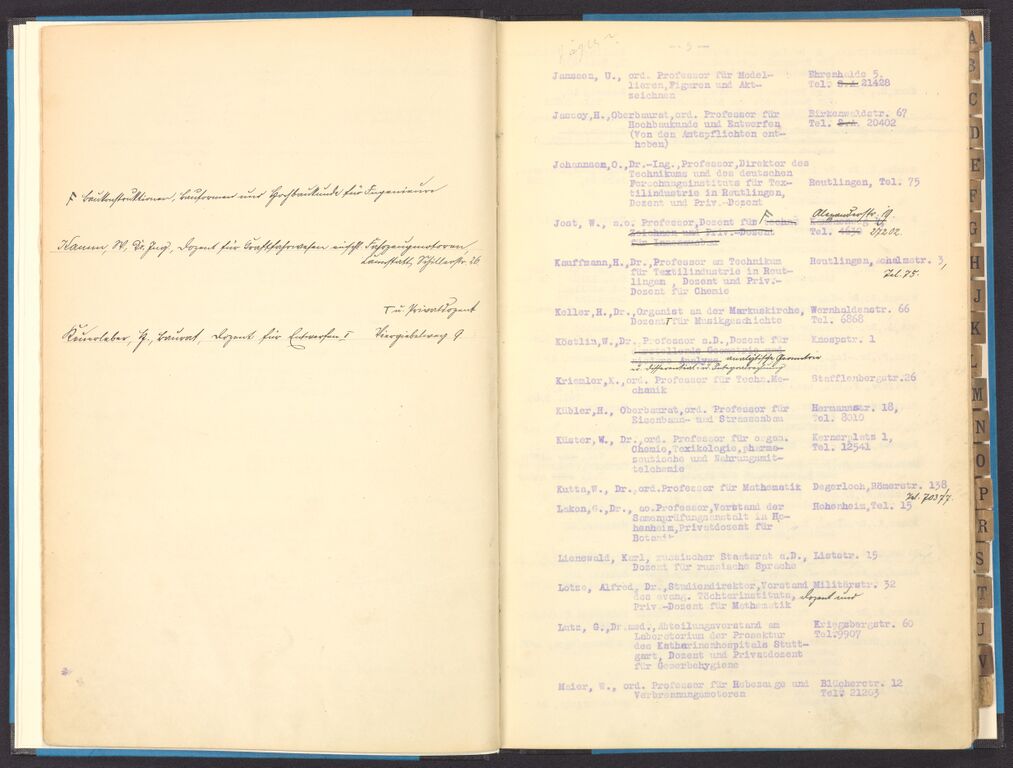 Baukonstruktionen, Bauformen und Hochbaukunde für Ingenieure
Kamm, W. Dr. Ing., Dozent für Kraftfahrwesen einschl. Fahrzeugmotoren,
Cannstatt, Schillerstr. 26
u. Privatdozent
Keuerleber, H., Baurat, Dozent für Entwerfen
- 9 -
Janssen, U., ord. Professor für Model- Ehrenhalde 5,
lieren, Figuren und Akt- Tel. S.A. 21428
zeichnen
Jassoy, H., Oberbaurat, ord. Professor für Birkenwaldstr. 67
Hochbaukunde und Entwerfen Tel. S.A. 20402
(Von den Amtspflichten ent-
hoben)
Johannsen, O., Dr.-Ing., Professor, Direktor des
Technikums und des deutschen
Forschungsinstituts für Tex- Reutlingen, Tel. 75
tilindustrie in Reutlingen,
Dozent und Priv.-Dozent
Alexanderstr.
Jost, W., a.o. Professor, Dozent für
Zeichnen und Priv.-Dozent Tel. 4630 27202
für Innenausbau
Kauffmann, H., Dr., Professor am Technikum Reutlingen, Achalmstr. 3,
für Textilindustrie in Reut- Tel. 75.
lingen, Dozent und Priv.-
Dozent für Chemie
Keller, H., Dr., Organist an der Markuskirche, Wernhaldenstr. 66
Dozent für Musikgeschichte Tel. 6868
Köstlin, W., Dr. Professor a.D., Dozent für Knospstr. 1
darstellende Geometrie und
niedere Analysis analytische Geometrie
u. Differential- u. Integralrechnung
Kriemler, K., ord. Professor für Techn. Me- Stafflenbergstr. 26
chanik
Kübler, H., Oberbaurat, ord. Professor für Hermannstr. 18,
Eisenbahn- und Strassenbau Tel. 8010
Küster, W., Dr., ord. Professor für organ. Kernerplatz 1,
Chemie, Toxikologie, pharma- Tel. 12541
zeutische und Nahrungsmit-
telchemie
Kutta, W., Dr., ord. Professor für Mathematik Degerloch, Römerstr. 138,
Tel. 70377.
Lakon, G., Dr., ao. Professor, Vorstand der Hohenheim, Tel. 15
Samenprüfungsanstalt in Ho-
henheim, Privatdozent für
Botanik
Lienewald, Karl, russischer Staatsrat a.D., Liststr. 15
Dozent für russische Sprache
Lotze, Alfred, Dr., Studiendirektor, Vorstand Militärstr. 32
des evang. Töchterinstituts, Dozent und
Priv.-Dozent für Mathematik
Lutz, G., Dr. med., Abteilungsvorstand am Kriegsbergstr. 60
Laboratorium der Prosektur Tel. 9907
des Katharinenhospitals Stutt-
gart, Dozent und Privatdozent
für Gewerbehygiene
Maier, W., ord. Professor für Hebezeuge und Blücherstr. 12
Verbrennungsmotoren Tel. 21203
A
B
C
D
E
F
G
H
J
K
L
M
N
O
P
R
S
T
U
V